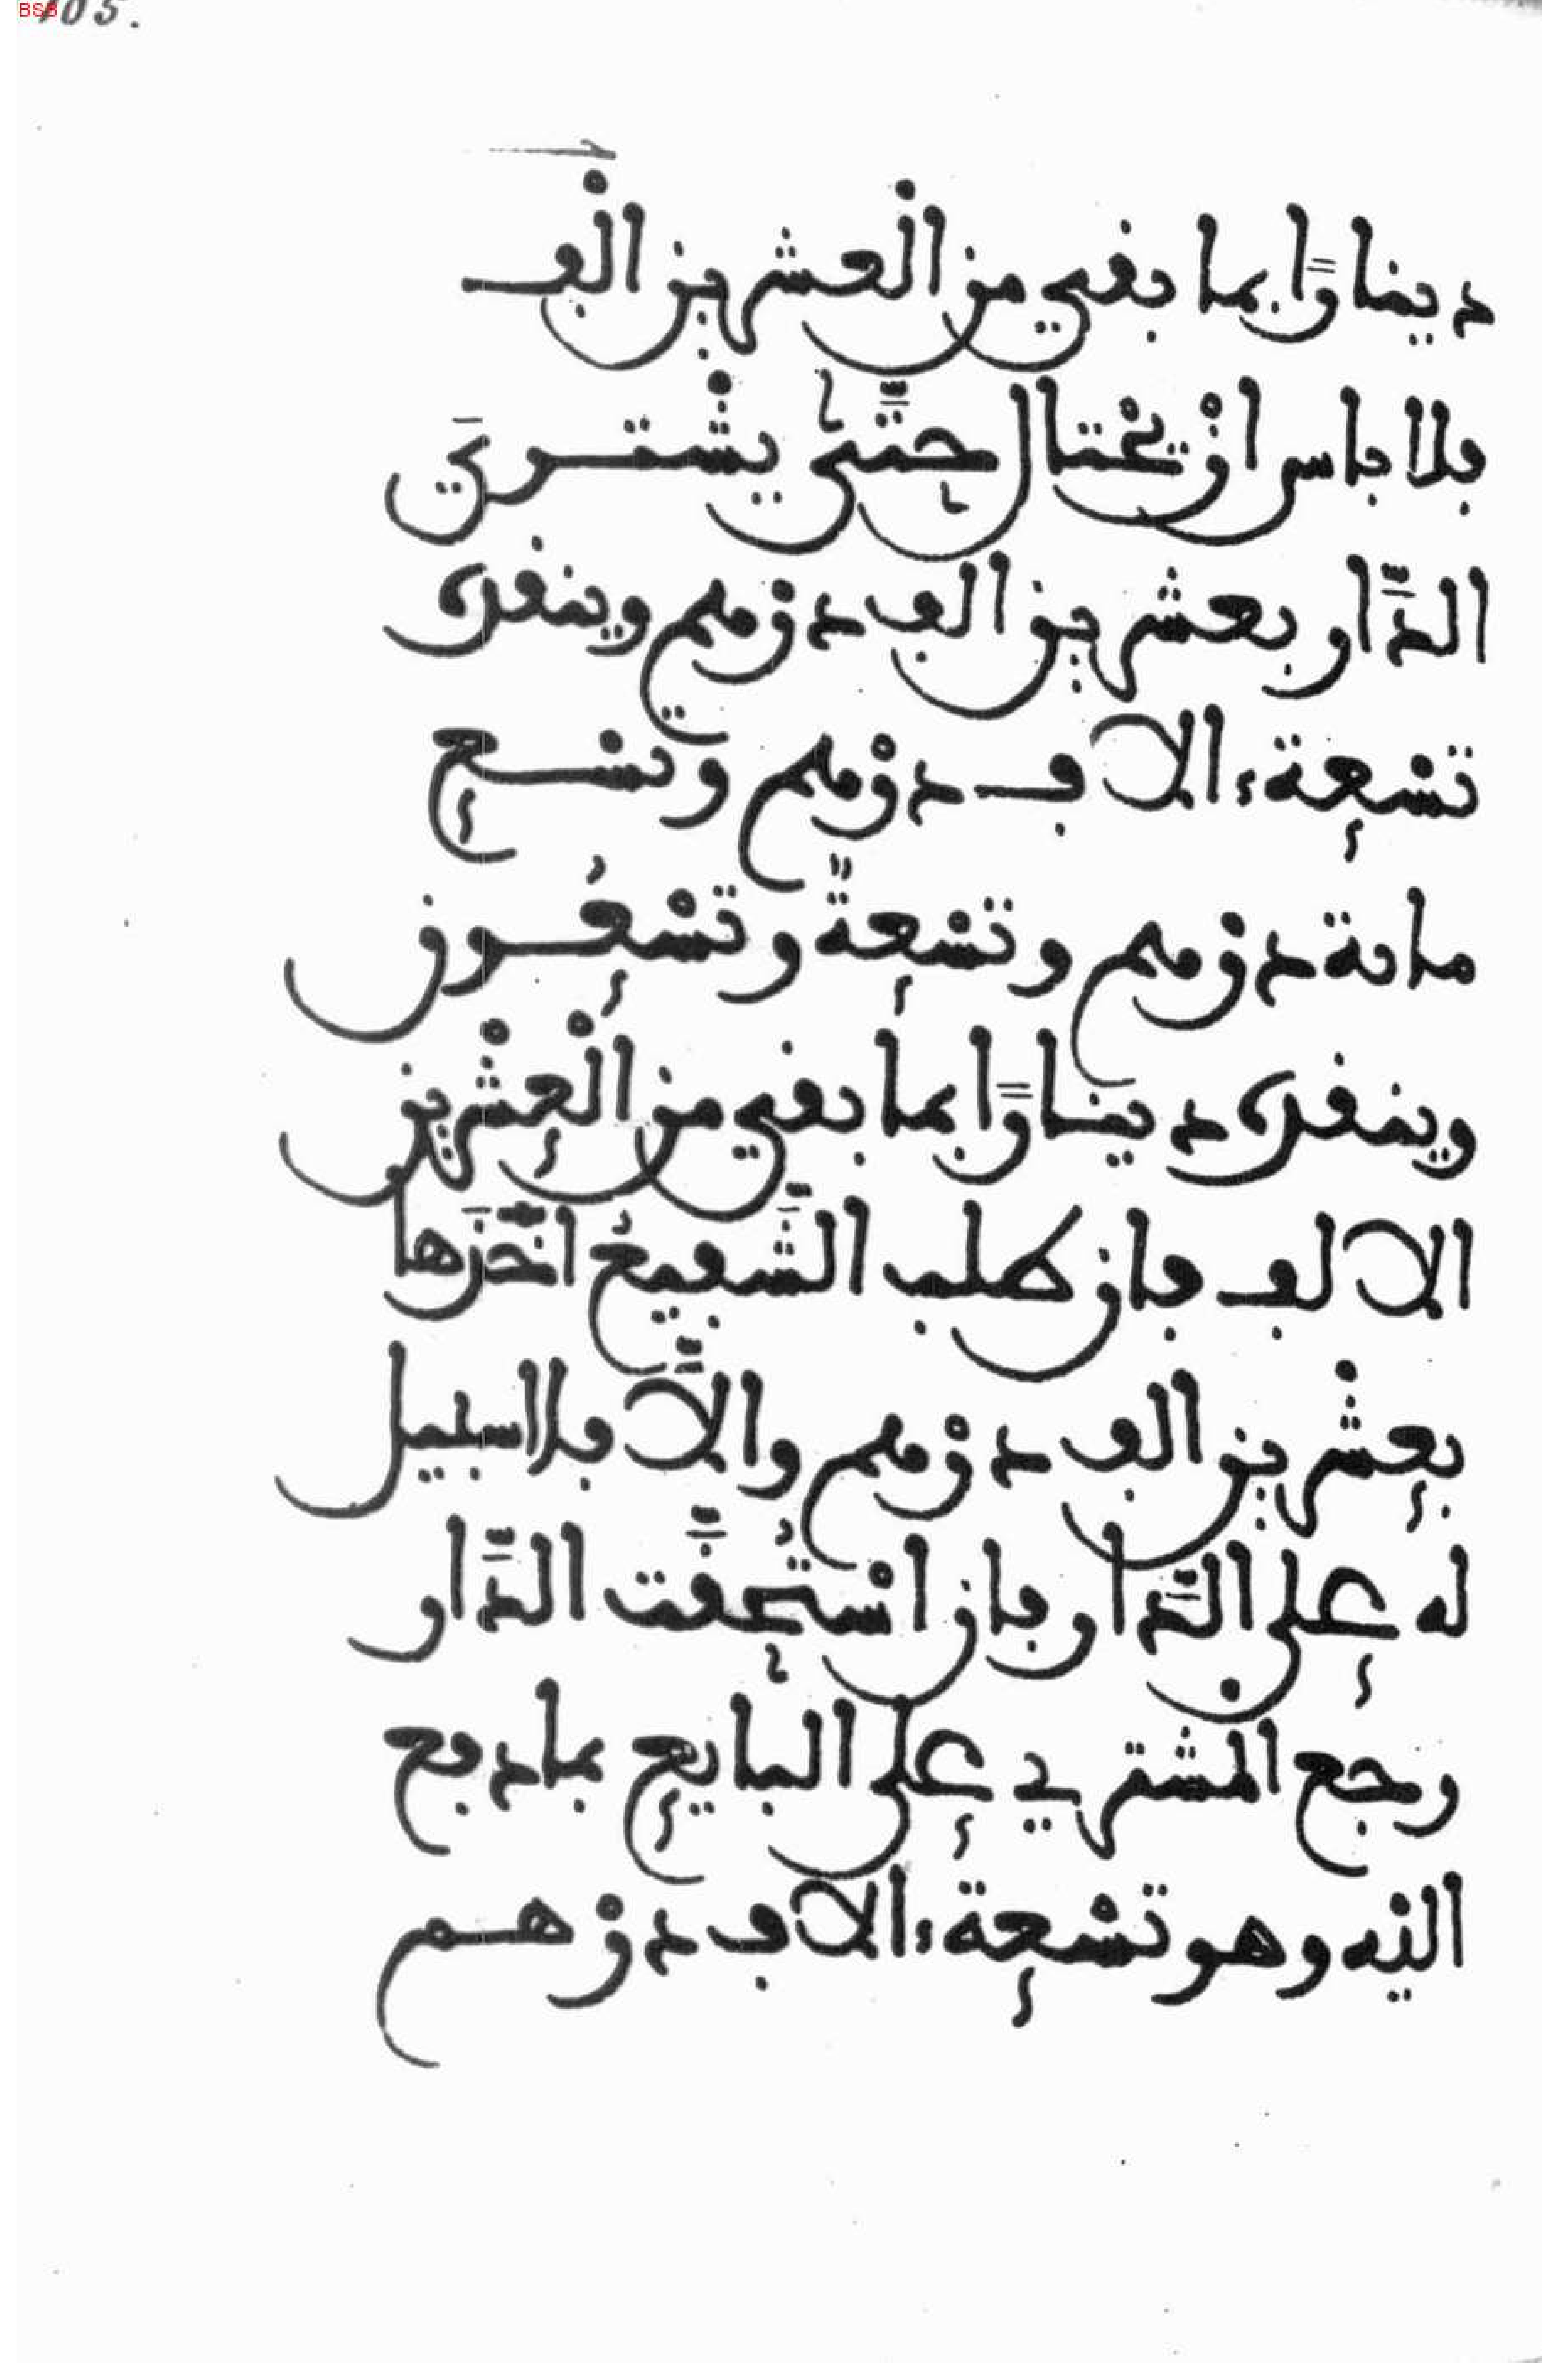 105.
دينارًا بما بقي من الْعشرين الْف
فلا باس انْ يحْتال حتَّى يشْتريَ
الدَّار بعشرين الف درْهم وينقد
تسْعة ءالاف درْهم وتسْع
ماىة درْهم وتسْعةً وتسْعُون
وينقد دينارًا بما بقي من الْعشْرين
الالف فان طلب الشَّفيعُ اخَّزَها
بعشْرين الف درْهم والَّا فلا سبيل
له على الدَّار فان اسْتُحقَّت الدَّار
رجع المْشتري على البايع بما دفع
اليْه وهو تسْعة ءالاف درْهم
BSB